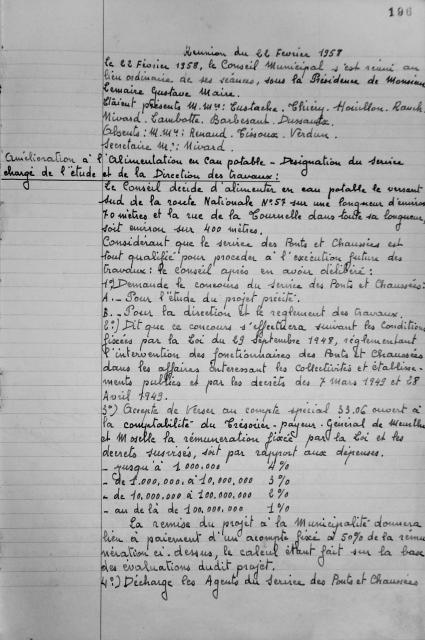 196
Réunion du 22 Février 1958
Le 22 Février 1958, le Conseil Municipal s'est réuni au
lieu ordinaire de ses séances, sous la Présidence de Monsieur
Lemaire Gustave Maire.
Etaient présents M.M.: Eustache. Thiéry. Houillon. Rauch.
Nivard. Lambotte. Barbesant. Dussaux.
Absents: M.M.: Renaud. Tissoux. Verdun.
Secrétaire M.: Nivard.
Amélioration à l'Alimentation en eau potable - Désignation du service
chargé de l'étude et de la Direction des travaux:
Le Conseil décide d'alimenter en eau potable le versant
Sud de la route Nationale N° 57 sur une longueur d'environ
70 mètres et la rue de la Tournelle dans toute sa longueur,
soit environ sur 400 mètres.
Considérant que le service des Ponts et Chaussées est
tout qualifié pour procéder à l'exécution future des
travaux: le conseil après en avoir délibéré:
1°) Demande le concours du service des Ponts et Chaussées:
A. - Pour l'étude du projet précité.
B. - Pour la direction et le règlement des travaux.
2°) Dit que ce concours s'effectuera suivant les conditions
fixées par la Loi du 29 Septembre 1948, réglementant
l'intervention des fonctionnaires des Ponts et Chaussées
dans les affaires intéressant les collectivités et établisse-
ments publics et par les décrets des 7 Mars 1949 et 28
Avril 1949.
3°) Accepte de Verser au compte spécial 33.06 ouvert à
la comptabilité du Trésorier-payeur-Général de Meurthe
et Moselle la rémunération fixée par la Loi et les
décrets susvisés, soit par rapport aux dépenses.
- jusqu'à 1.000.000 4%
- de 1.000.000 à 10.000.000 3%
- de 10.000.000 à 100.000.000 2%
- au de là de 100.000.000 1%
La remise du projet à la Municipalité donnera
lieu à paiement d'un acompte fixé à 50% de la rému
nération ci-dessus, le calcul étant fait sur la base
des évaluations dudit projet.
4°) Décharge les Agents du Service des Ponts et Chaussées